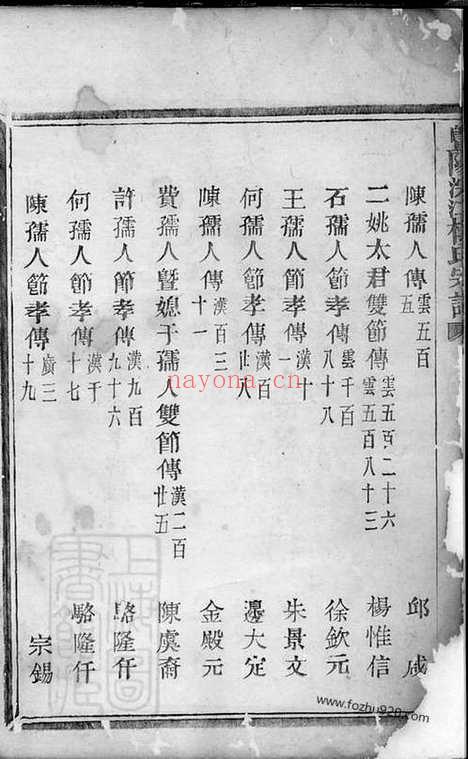 暨陽次浦楊氏宗譜
陳孺人傳 雲五百五 邱成
二姚太君雙節傳 雲五百二十六 雲五百八十三 楊惟信
石孺人節孝傳 雲千百八十八 徐欽元
王孺人節孝傳 漢十一 朱景文
何孺人節孝傳 漢百廿八 邊大定
陳孺人傳 漢百三十一 金殿元
費孺人暨媳于孺人雙節傳 漢二百廿五 陳虞裔
許孺人節孝傳 漢九百九十六 駱隆仟
何孺人節孝傳 漢千十七 駱隆仟
陳孺人節孝傳 廣三十九 宗錫
上海圖書館藏
nayona.cn
www.fozhu920.com